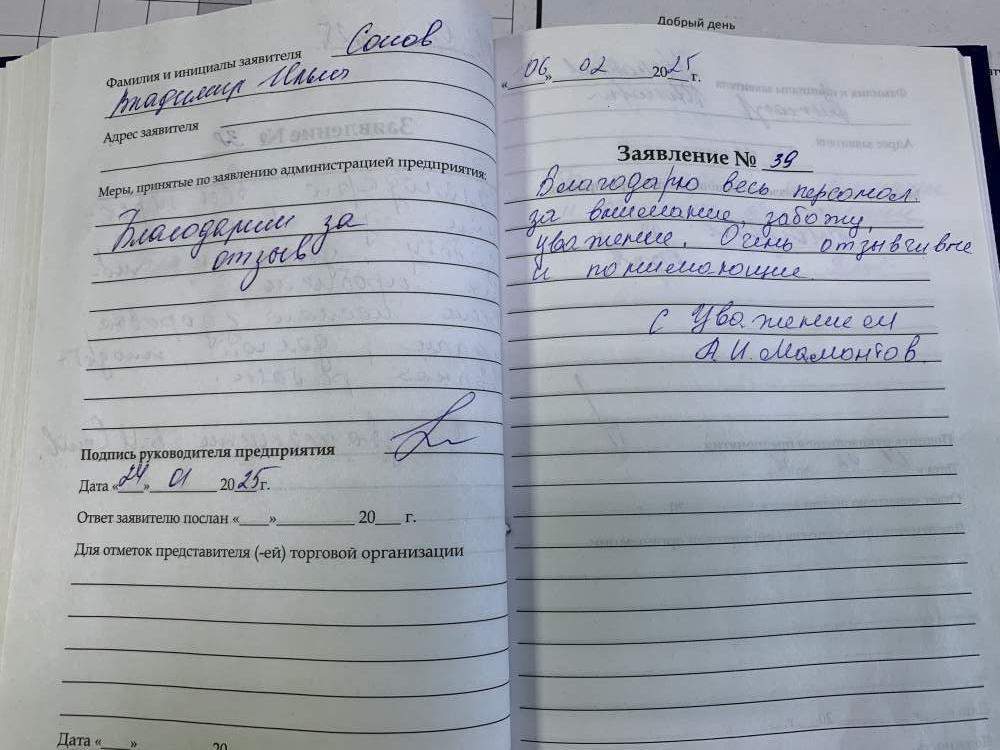 Добрый день
Фамилия и инициалы заявителя Сонов
Владимир Ильич
Адрес заявителя
Меры, принятые по заявлению администрацией предприятия:
Благодарим за
отзыв
Подпись руководителя предприятия
Дата «24» 01 2025г.
Ответ заявителю послан «___»__________ 20___ г.
Для отметок представителя (-ей) торговой организации
Дата «___» 20
«06» 02 2025 г.
Заявление № 39
Благодарю весь персонал.
за внимание, забожу,
уважение. Очень отзывчивые
и понимающие.
С Уважением
А.И. Мамонтов.